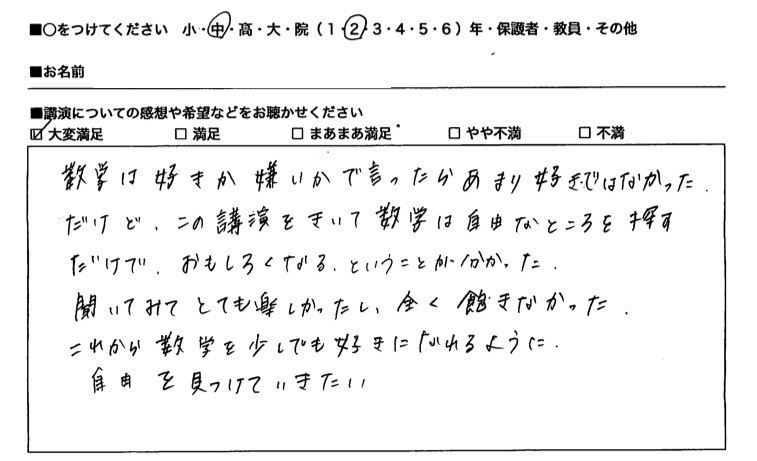 ■○をつけてください 小・中・高・大・院（1・2・3・4・5・6）年・保護者・教員・その他
■お名前
■講演についての感想や希望などをお聴かせください
☑ 大変満足 □ 満足 □ まあまあ満足 □ やや不満 □ 不満
数学は好きか嫌いかで言ったらあまり好きではなかった.
だけど、この講演をきいて数学は自由なところを探す
だけで、おもしろくなる、ということが分かった.
聞いてみてとても楽しかったし、全く飽きなかった.
これから数学を少しでも好きになれるように.
自由を見つけていきたい